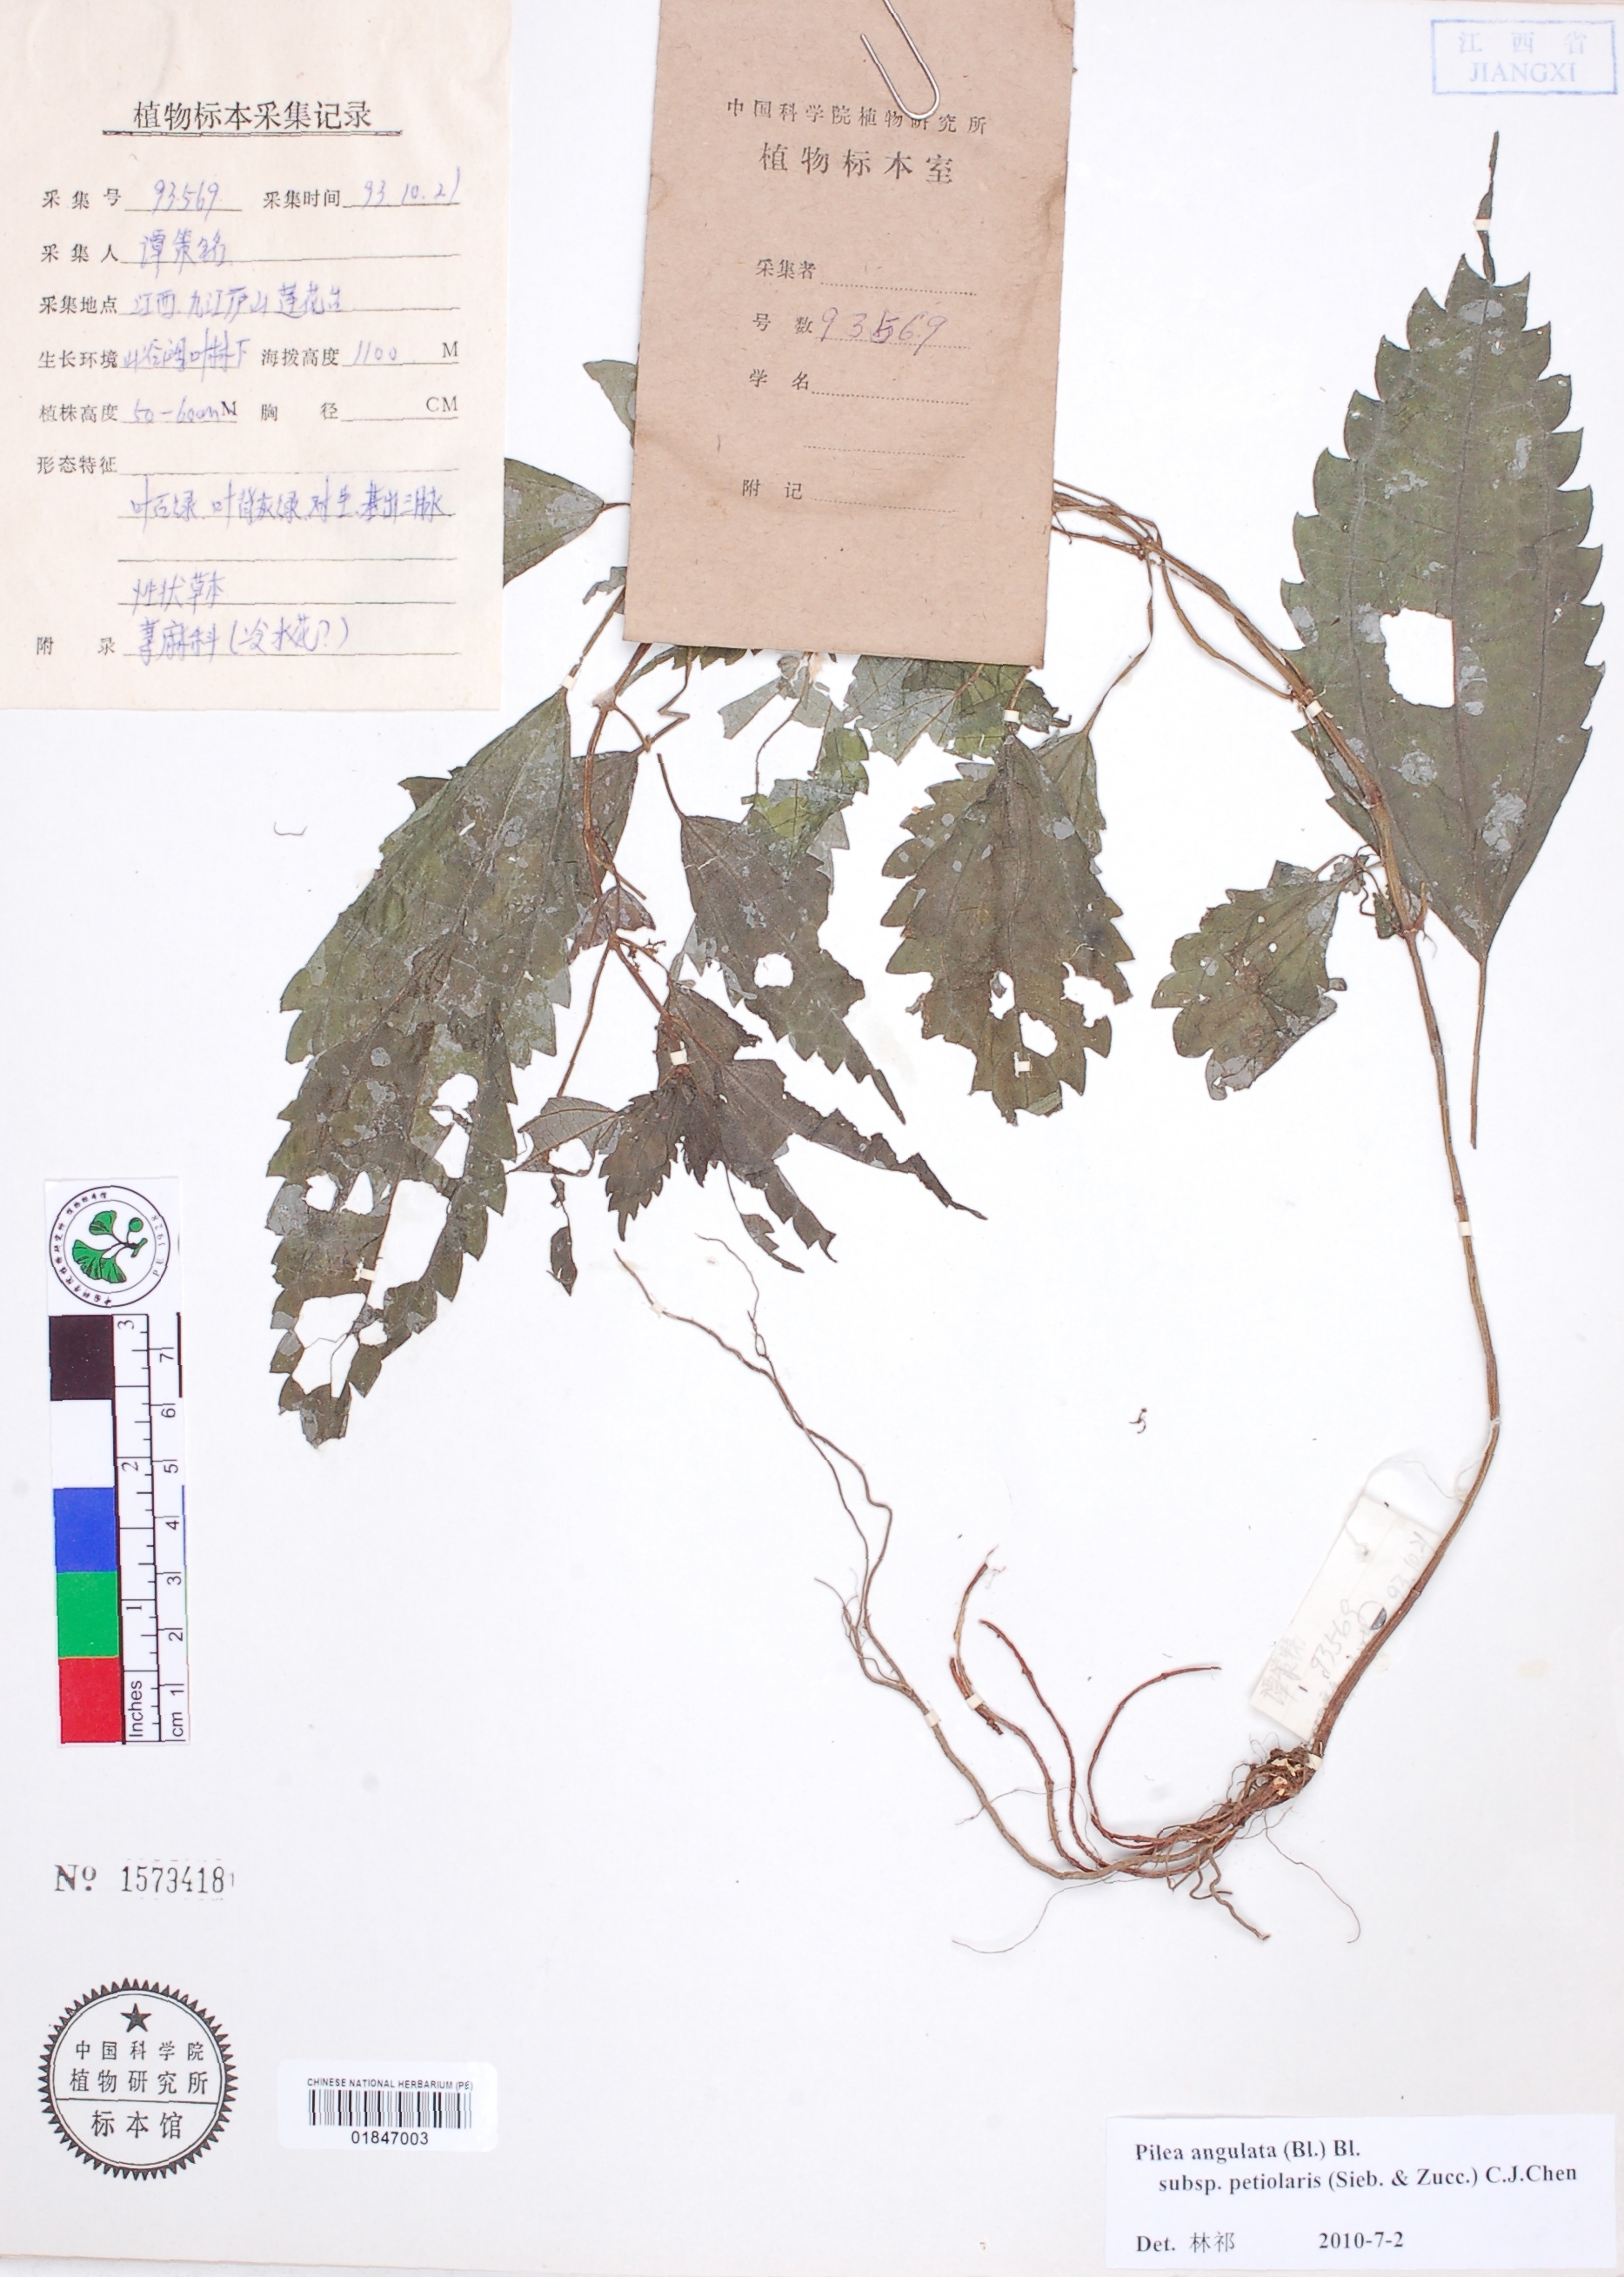 植物标本采集记录
采集号 93569 采集时间 93.10.21
采集人 谭策铭
采集地点 江西.九江庐山莲花台
生长环境 山谷阔叶林下 海拨高度 1100 M
植株高度 50-60cm M 胸 径 CM
形态特征
叶面绿.叶背灰绿.对生.基出三脉
性状草本
附 录 荨麻科(冷水花?)
中国科学院植物研究所
植物标本室
采集者
号 数 93569
学 名
附 记
江西省
JIANGXI
Inches
cm
1 2 3
1 2 3 4 5 6 7
谭策铭
93569
№ 1573418
中国科学院
植物研究所
标本馆
CHINESE NATIONAL HERBARIUM (PE)
01847003
Pilea angulata (Bl.) Bl.
subsp. petiolaris (Sieb. & Zucc.) C.J.Chen
Det. 林祁 2010-7-2